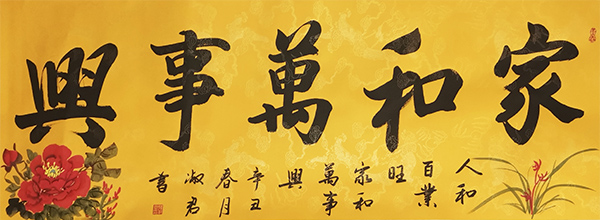 家和萬事興
人和
百業
旺
家和
萬事
興
辛丑
春月
淑君
書